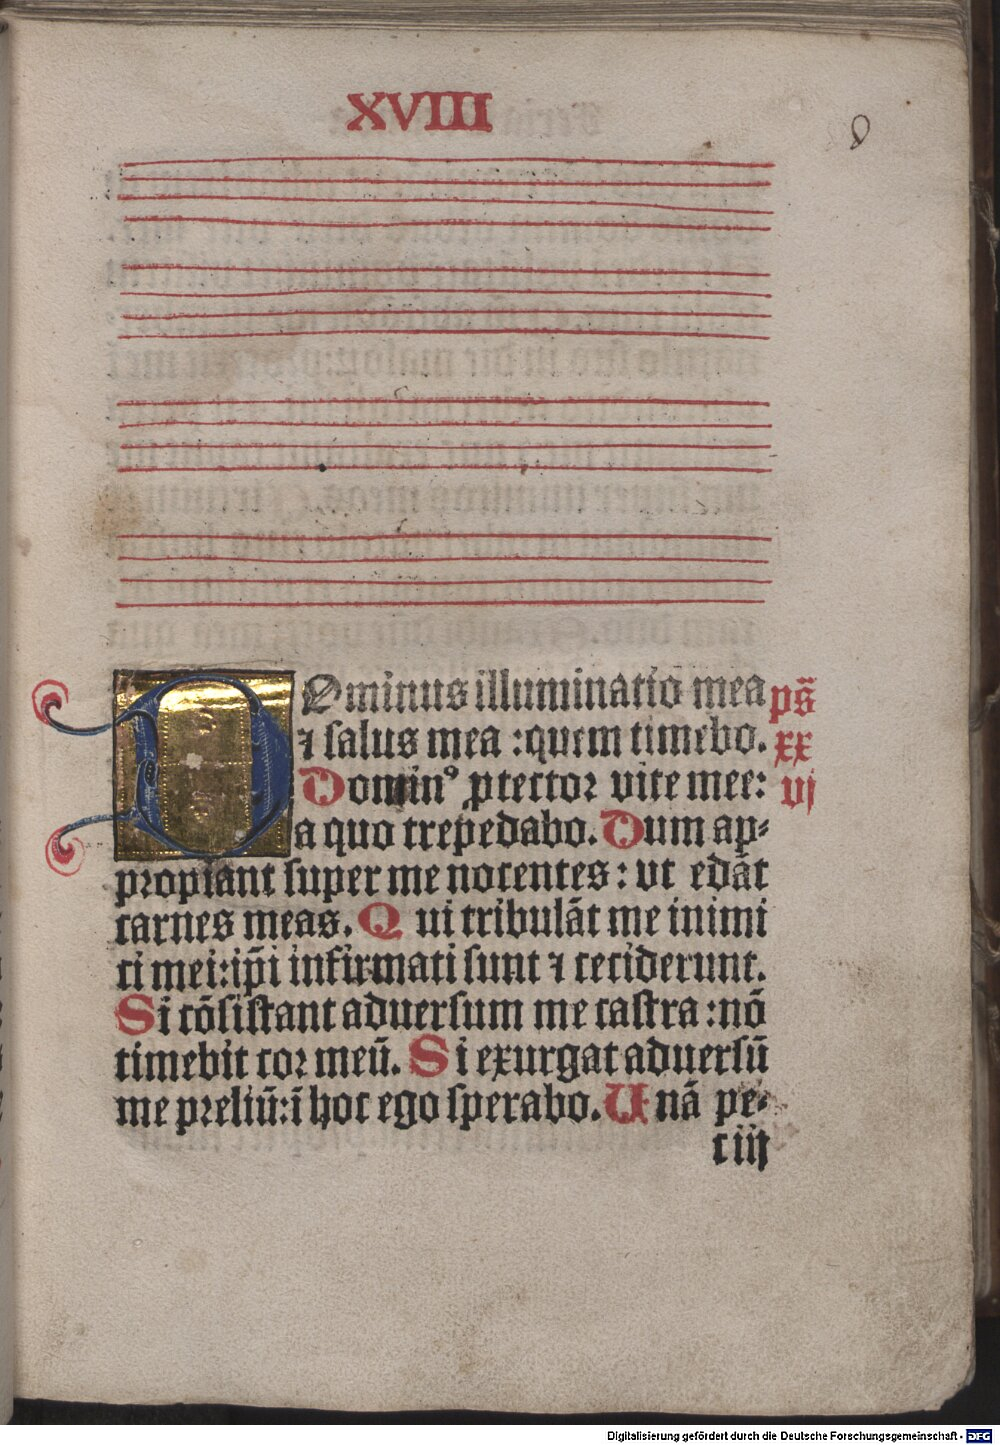 XVIII
D
Ominus illuminatiō mea
ps̄
⁊ salus mea : quem timebo.
xx
Dominꝰ ꝓtector vite mee:
vj
a quo trepedabo. Dum ap⸗
propiant super me nocentes : vt edāt
carnes meas. Qui tribulāt me inimi
ci mei: ip̄i infirmati sunt ⁊ ceciderunt.
Si cōsistant aduersum me castra : nō
timebit cor meū. Si exurgat aduersū
me preliū: ī hoc ego sperabo. Unā pe⸗
c iij
Digitalisierung gefördert durch die Deutsche Forschungsgemeinschaft - DFG